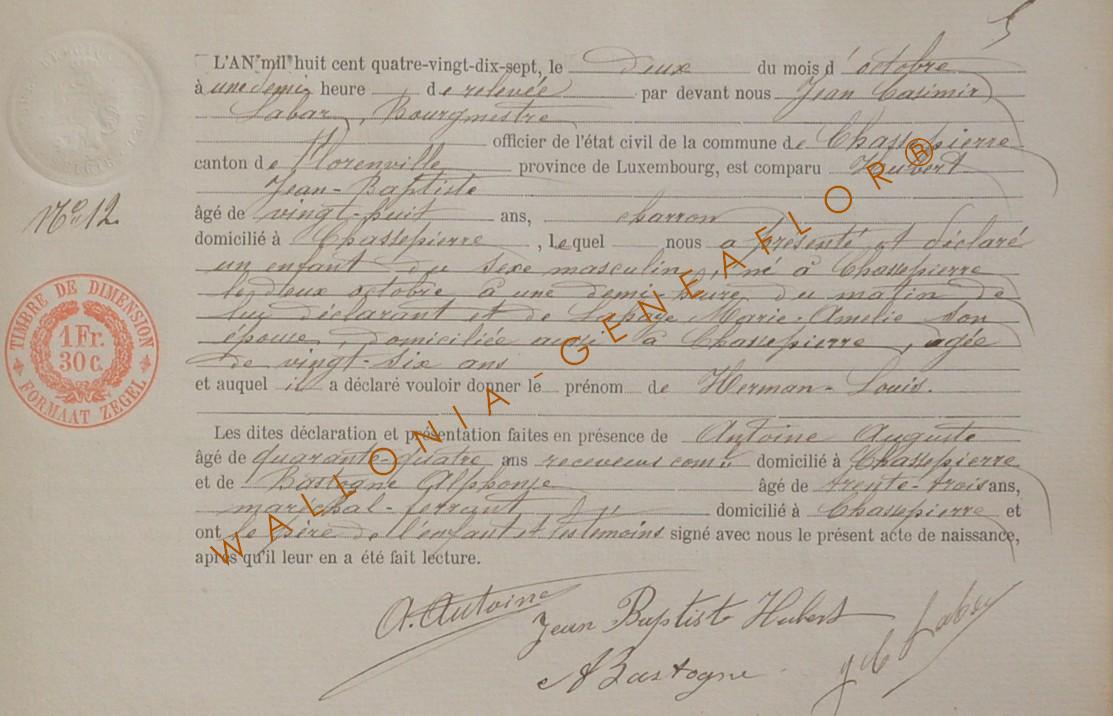 5
L'AN mil huit cent quatre-vingt-dix-sept, le deux du mois d'octobre
à une demi heure de relevée par devant nous Jean Casimir
Labar, Bourgmestre
officier de l'état civil de la commune de Chassepierre
canton de Florenville province de Luxembourg, est comparu Hubert
Jean-Baptiste
âgé de vingt-huit ans, charron
domicilié à Chassepierre, lequel nous a présenté et déclaré
un enfant du sexe masculin, né à Chassepierre
le deux octobre à une demi-heure du matin de
lui déclarant et de Marie-Amelie son
épouse, domiciliée aussi à Chassepierre, agée
de vingt-six ans
et auquel il a déclaré vouloir donner le prénom de Herman-Louis.
Les dites déclaration et présentation faites en présence de Antoine Auguste
âgé de quarante-quatre ans receveur comu domicilié à Chassepierre
et de Bastogne Alphonse âgé de trente-trois ans,
maréchal-ferrant domicilié à Chassepierre et
ont le père de l'enfant et les témoins signé avec nous le présent acte de naissance,
après qu'il leur en a été fait lecture.
A. Antoine
Jean Baptiste Hubert
A Bastogne
J C Labar
No 12.
TIMBRE DE DIMENSION
1 Fr.
30 c.
FORMAAT ZEGEL
WALLONIA-GENEAFLOR®